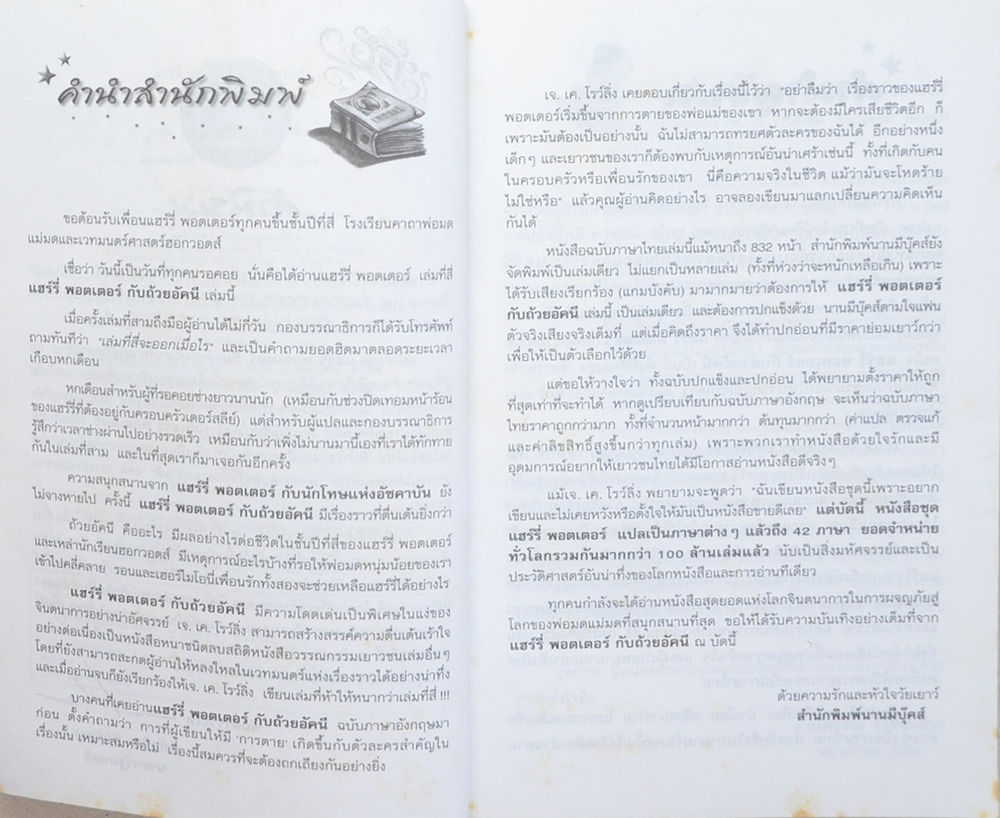 คำนำสำนักพิมพ์
ขอต้อนรับเพื่อนแฮร์รี่ พอตเตอร์ทุกคนขึ้นชั้นปีที่สี่ โรงเรียนคาถาพ่อมด
แม่มดและเวทมนตร์ศาสตร์ฮอกวอตส์
เชื่อว่า วันนี้เป็นวันที่ทุกคนรอคอย นั่นคือได้อ่านแฮร์รี่ พอตเตอร์ เล่มที่สี่
แฮร์รี่ พอตเตอร์ กับถ้วยอัคนี เล่มนี้
เมื่อครั้งเล่มที่สามถึงมือผู้อ่านได้ไม่กี่วัน กองบรรณาธิการก็ได้รับโทรศัพท์
ถามทันทีว่า "เล่มที่สี่จะออกเมื่อไร" และเป็นคำถามยอดฮิตมาตลอดระยะเวลา
เกือบหกเดือน
หกเดือนสำหรับผู้ที่รอคอยช่างยาวนานนัก (เหมือนกับช่วงปิดเทอมหน้าร้อน
ของแฮร์รี่ที่ต้องอยู่กับครอบครัวเดอร์สลีย์) แต่สำหรับผู้แปลและกองบรรณาธิการ
รู้สึกว่าเวลาช่างผ่านไปอย่างรวดเร็ว เหมือนกับว่าเพิ่งไม่นานมานี้เองที่เราได้ทักทาย
กันในเล่มที่สาม และในที่สุดเราก็มาเจอกันอีกครั้ง
ความสนุกสนานจาก แฮร์รี่ พอตเตอร์ กับนักโทษแห่งอัซคาบัน ยัง
ไม่จางหายไป ครั้งนี้ แฮร์รี่ พอตเตอร์ กับถ้วยอัคนี มีเรื่องราวที่ตื่นเต้นยิ่งกว่า
ถ้วยอัคนี คืออะไร มีผลอย่างไรต่อชีวิตในชั้นปีที่สี่ของแฮร์รี่ พอตเตอร์
และเหล่านักเรียนฮอกวอตส์ มีเหตุการณ์อะไรบ้างที่รอให้พ่อมดหนุ่มน้อยของเรา
เข้าไปคลี่คลาย รอนและเฮอร์ไมโอนี่เพื่อนรักทั้งสองจะช่วยเหลือแฮร์รี่ได้อย่างไร
แฮร์รี่ พอตเตอร์ กับถ้วยอัคนี มีความโดดเด่นเป็นพิเศษในแง่ของ
จินตนาการอย่างน่าอัศจรรย์ เจ. เค. โรว์ลิ่ง สามารถสร้างสรรค์ความตื่นเต้นเร้าใจ
อย่างต่อเนื่องเป็นหนังสือหนาชนิดลบสถิติหนังสือวรรณกรรมเยาวชนเล่มอื่นๆ
โดยที่ยังสามารถสะกดผู้อ่านให้หลงใหลในเวทมนตร์แห่งเรื่องราวได้อย่างน่าทึ่ง
และเมื่ออ่านจบก็ยังเรียกร้องให้เจ. เค. โรว์ลิ่ง เขียนเล่มที่ห้าให้หนากว่าเล่มที่สี่ !!!
บางคนที่เคยอ่านแฮร์รี่ พอตเตอร์ กับถ้วยอัคนี ฉบับภาษาอังกฤษมา
ก่อน ตั้งคำถามว่า การที่ผู้เขียนให้มี 'การตาย' เกิดขึ้นกับตัวละครสำคัญใน
เรื่องนั้น เหมาะสมหรือไม่ เรื่องนี้สมควรที่จะต้องถกเถียงกันอย่างยิ่ง
เจ. เค. โรว์ลิ่ง เคยตอบเกี่ยวกับเรื่องนี้ไว้ว่า "อย่าลืมว่า เรื่องราวของแฮร์รี่
พอตเตอร์เริ่มขึ้นจากการตายของพ่อแม่ของเขา หากจะต้องมีใครเสียชีวิตอีก ก็
เพราะมันต้องเป็นอย่างนั้น ฉันไม่สามารถทรยศตัวละครของฉันได้ อีกอย่างหนึ่ง
เด็กๆ และเยาวชนของเราก็ต้องพบกับเหตุการณ์อันน่าเศร้าเช่นนี้ ทั้งที่เกิดกับคน
ในครอบครัวหรือเพื่อนรักของเขา นี่คือความจริงในชีวิต แม้ว่ามันจะโหดร้าย
ไม่ใช่หรือ" แล้วคุณผู้อ่านคิดอย่างไร อาจลองเขียนมาแลกเปลี่ยนความคิดเห็น
กันได้
หนังสือฉบับภาษาไทยเล่มนี้แม้หนาถึง 832 หน้า สำนักพิมพ์นานมีบุ๊คส์ยัง
จัดพิมพ์เป็นเล่มเดียว ไม่แยกเป็นหลายเล่ม (ทั้งที่ห่วงว่าจะหนักเหลือเกิน) เพราะ
ได้รับเสียงเรียกร้อง (แกมบังคับ) มามากมายว่าต้องการให้ แฮร์รี่ พอตเตอร์
กับถ้วยอัคนี เล่มนี้ เป็นเล่มเดียว และต้องการปกแข็งด้วย นานมีบุ๊คส์ตามใจแฟน
ตัวจริงเสียงจริงเต็มที่ แต่เมื่อคิดถึงราคา จึงได้ทำปกอ่อนที่มีราคาย่อมเยาว์กว่า
เพื่อให้เป็นตัวเลือกไว้ด้วย
แต่ขอให้วางใจว่า ทั้งฉบับปกแข็งและปกอ่อน ได้พยายามตั้งราคาให้ถูก
ที่สุดเท่าที่จะทำได้ หากดูเปรียบเทียบกับฉบับภาษาอังกฤษ จะเห็นว่าฉบับภาษา
ไทยราคาถูกกว่ามาก ทั้งที่จำนวนหน้ามากกว่า ต้นทุนมากกว่า (ค่าแปล ตรวจแก้
และค่าลิขสิทธิ์สูงขึ้นกว่าทุกเล่ม) เพราะพวกเราทำหนังสือด้วยใจรักและมี
อุดมการณ์อยากให้เยาวชนไทยได้มีโอกาสอ่านหนังสือดีจริงๆ
แม้เจ. เค. โรว์ลิ่ง พยายามจะพูดว่า "ฉันเขียนหนังสือชุดนี้เพราะอยาก
เขียนและไม่เคยหวังหรือตั้งใจให้มันเป็นหนังสือขายดีเลย" แต่บัดนี้ หนังสือชุด
แฮร์รี่ พอตเตอร์ แปลเป็นภาษาต่างๆ แล้วถึง 42 ภาษา ยอดจำหน่าย
ทั่วโลกรวมกันมากกว่า 100 ล้านเล่มแล้ว นับเป็นสิ่งมหัศจรรย์และเป็น
ประวัติศาสตร์อันน่าทึ่งของโลกหนังสือและการอ่านทีเดียว
ทุกคนกำลังจะได้อ่านหนังสือสุดยอดแห่งโลกจินตนาการในการผจญภัยสู่
โลกของพ่อมดแม่มดที่สนุกสนานที่สุด ขอให้ได้รับความบันเทิงอย่างเต็มที่จาก
แฮร์รี่ พอตเตอร์ กับถ้วยอัคนี ณ บัดนี้
ด้วยความรักและหัวใจวัยเยาว์
สำนักพิมพ์นานมีบุ๊คส์